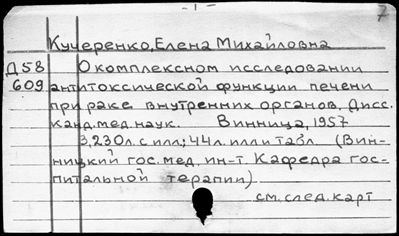 - 1 -
7
Кучеренко, Елена Михайловна
Д58 О комплексном исследовании
609 антитоксической функции печени
при раке внутренних органов. Дисс.
канд. мед. наук. Винница, 1957
3,230л. с илл; 44л. илл и табл. (Вин-
ницкий гос. мед. ин-т. Кафедра гос-
питальной терапии).
см. след. карт